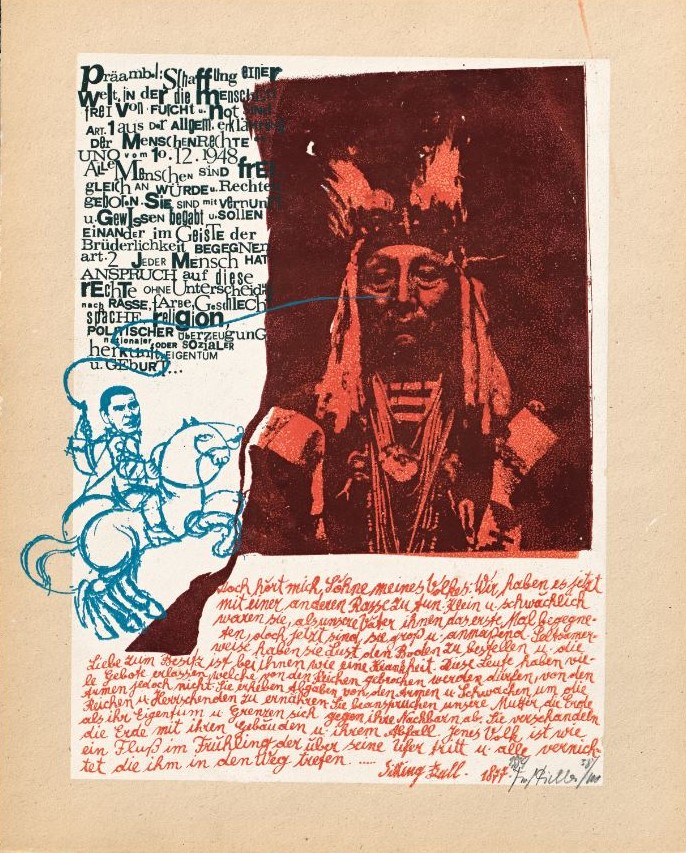 Präambel: Schaffung einer
Welt, in der die Menschen
frei von Furcht u. Not sind
ART. 1 aus der Allgem. erklärung
Der MenschenRechte
UNO vom 10.12.1948
Alle Menschen sind frei
gleich an WÜRDE u. Rechten
geboren. Sie sind mit Vernunft
u. Gewissen begabt u. sollen
einander im Geiste der
Brüderlichkeit BEGEGNEN
art. 2 Jeder Mensch HAT
ANSPRUCH auf diese
rechte OHNE Unterscheidg
nach RASSE, farbe, Geschlecht
spRACHE religion,
POLITISCHER überzeugung
nationaler oder sozialer
herkunft, EIGENTUM
u. GEBURT...
Doch hört mich, Söhne meines Volkes: Wir haben es jetzt
mit einer anderen Rasse zu tun. Klein u. schwächlich
waren sie, als unsere Väter ihnen das erste Mal begegne-
ten, doch jetzt sind sie groß u. anmaßend. Seltsamer-
weise haben sie Lust den Boden zu bestellen u. die
Liebe zum Besitz ist bei ihnen wie eine Krankheit. Diese Leute haben vie-
le Gebote erlassen, welche von den Reichen gebrochen werden dürfen, von den
Armen jedoch nicht. Sie erheben Abgaben von den Armen u. Schwachen um die
Reichen u. Herrschenden zu ernähren. Sie beanspruchen unsere Mutter, die Erde
als ihr Eigentum u. Grenzen sich gegen ihre Nachbarn ab. Sie verschandeln
die Erde mit ihren Gebäuden u. ihrem Abfall. Jenes Volk ist wie
ein Fluß im Frühling der über seine Ufer tritt u. alle vernich-
tet die ihm in den Weg treten. .....
Sitting Bull. 1877.